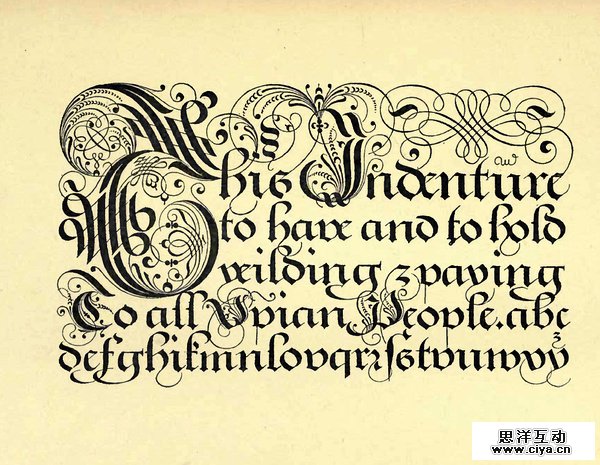 This Indenture
to have and to hold
yeilding & paying
To all Xpian People. abc
defghikmnlopqrzſstvuwxyz
思洋互动
www.ciya.cn